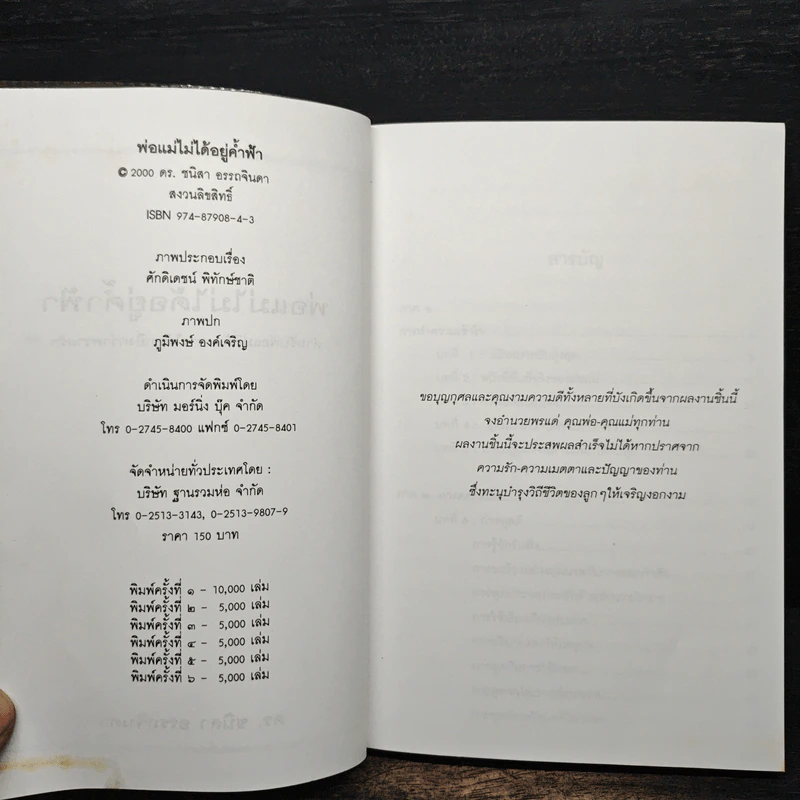 พ่อแม่ไม่ได้อยู่ค้ำฟ้า
© 2000 ดร. ชนิสา อรรถจินดา
สงวนลิขสิทธิ์
ISBN 974-87908-4-3
ภาพประกอบเรื่อง
ศักดิเดชน์ พิทักษ์ชาติ
ภาพปก
ภูมิพงษ์ องค์เจริญ
ดำเนินการจัดพิมพ์โดย
บริษัท มอร์นิ่ง บุ๊ค จำกัด
โทร 0-2745-8400 แฟกซ์ 0-2745-8401
จัดจำหน่ายทั่วประเทศโดย :
บริษัท ฐานรวมห่อ จำกัด
โทร 0-2513-3143, 0-2513-9807-9
ราคา 150 บาท
พิมพ์ครั้งที่ ๑ - 10,000 เล่ม
พิมพ์ครั้งที่ ๒ - 5,000 เล่ม
พิมพ์ครั้งที่ ๓ - 5,000 เล่ม
พิมพ์ครั้งที่ ๔ - 5,000 เล่ม
พิมพ์ครั้งที่ ๕ - 5,000 เล่ม
พิมพ์ครั้งที่ ๖ - 5,000 เล่ม
ขอบุญกุศลและคุณงามความดีทั้งหลายที่บังเกิดขึ้นจากผลงานชิ้นนี้
จงอำนวยพรแด่ คุณพ่อ-คุณแม่ทุกท่าน
ผลงานชิ้นนี้จะประสพผลสำเร็จไม่ได้หากปราศจาก
ความรัก-ความเมตตาและปัญญาของท่าน
ซึ่งทะนุบำรุงวิถีชีวิตของลูก ๆให้เจริญงอกงาม